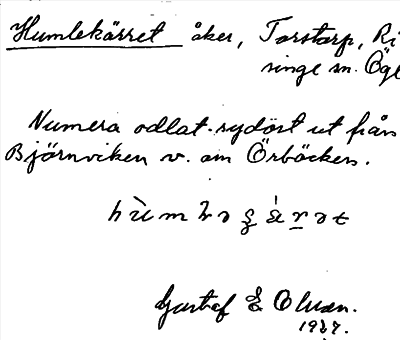 Humlekärret åker, Torstorp, Ri
singe sn. Ögl
Numera odlat. sydöst ut från
Björnviken v. om Örbäcken.
Gustaf E Olsson.